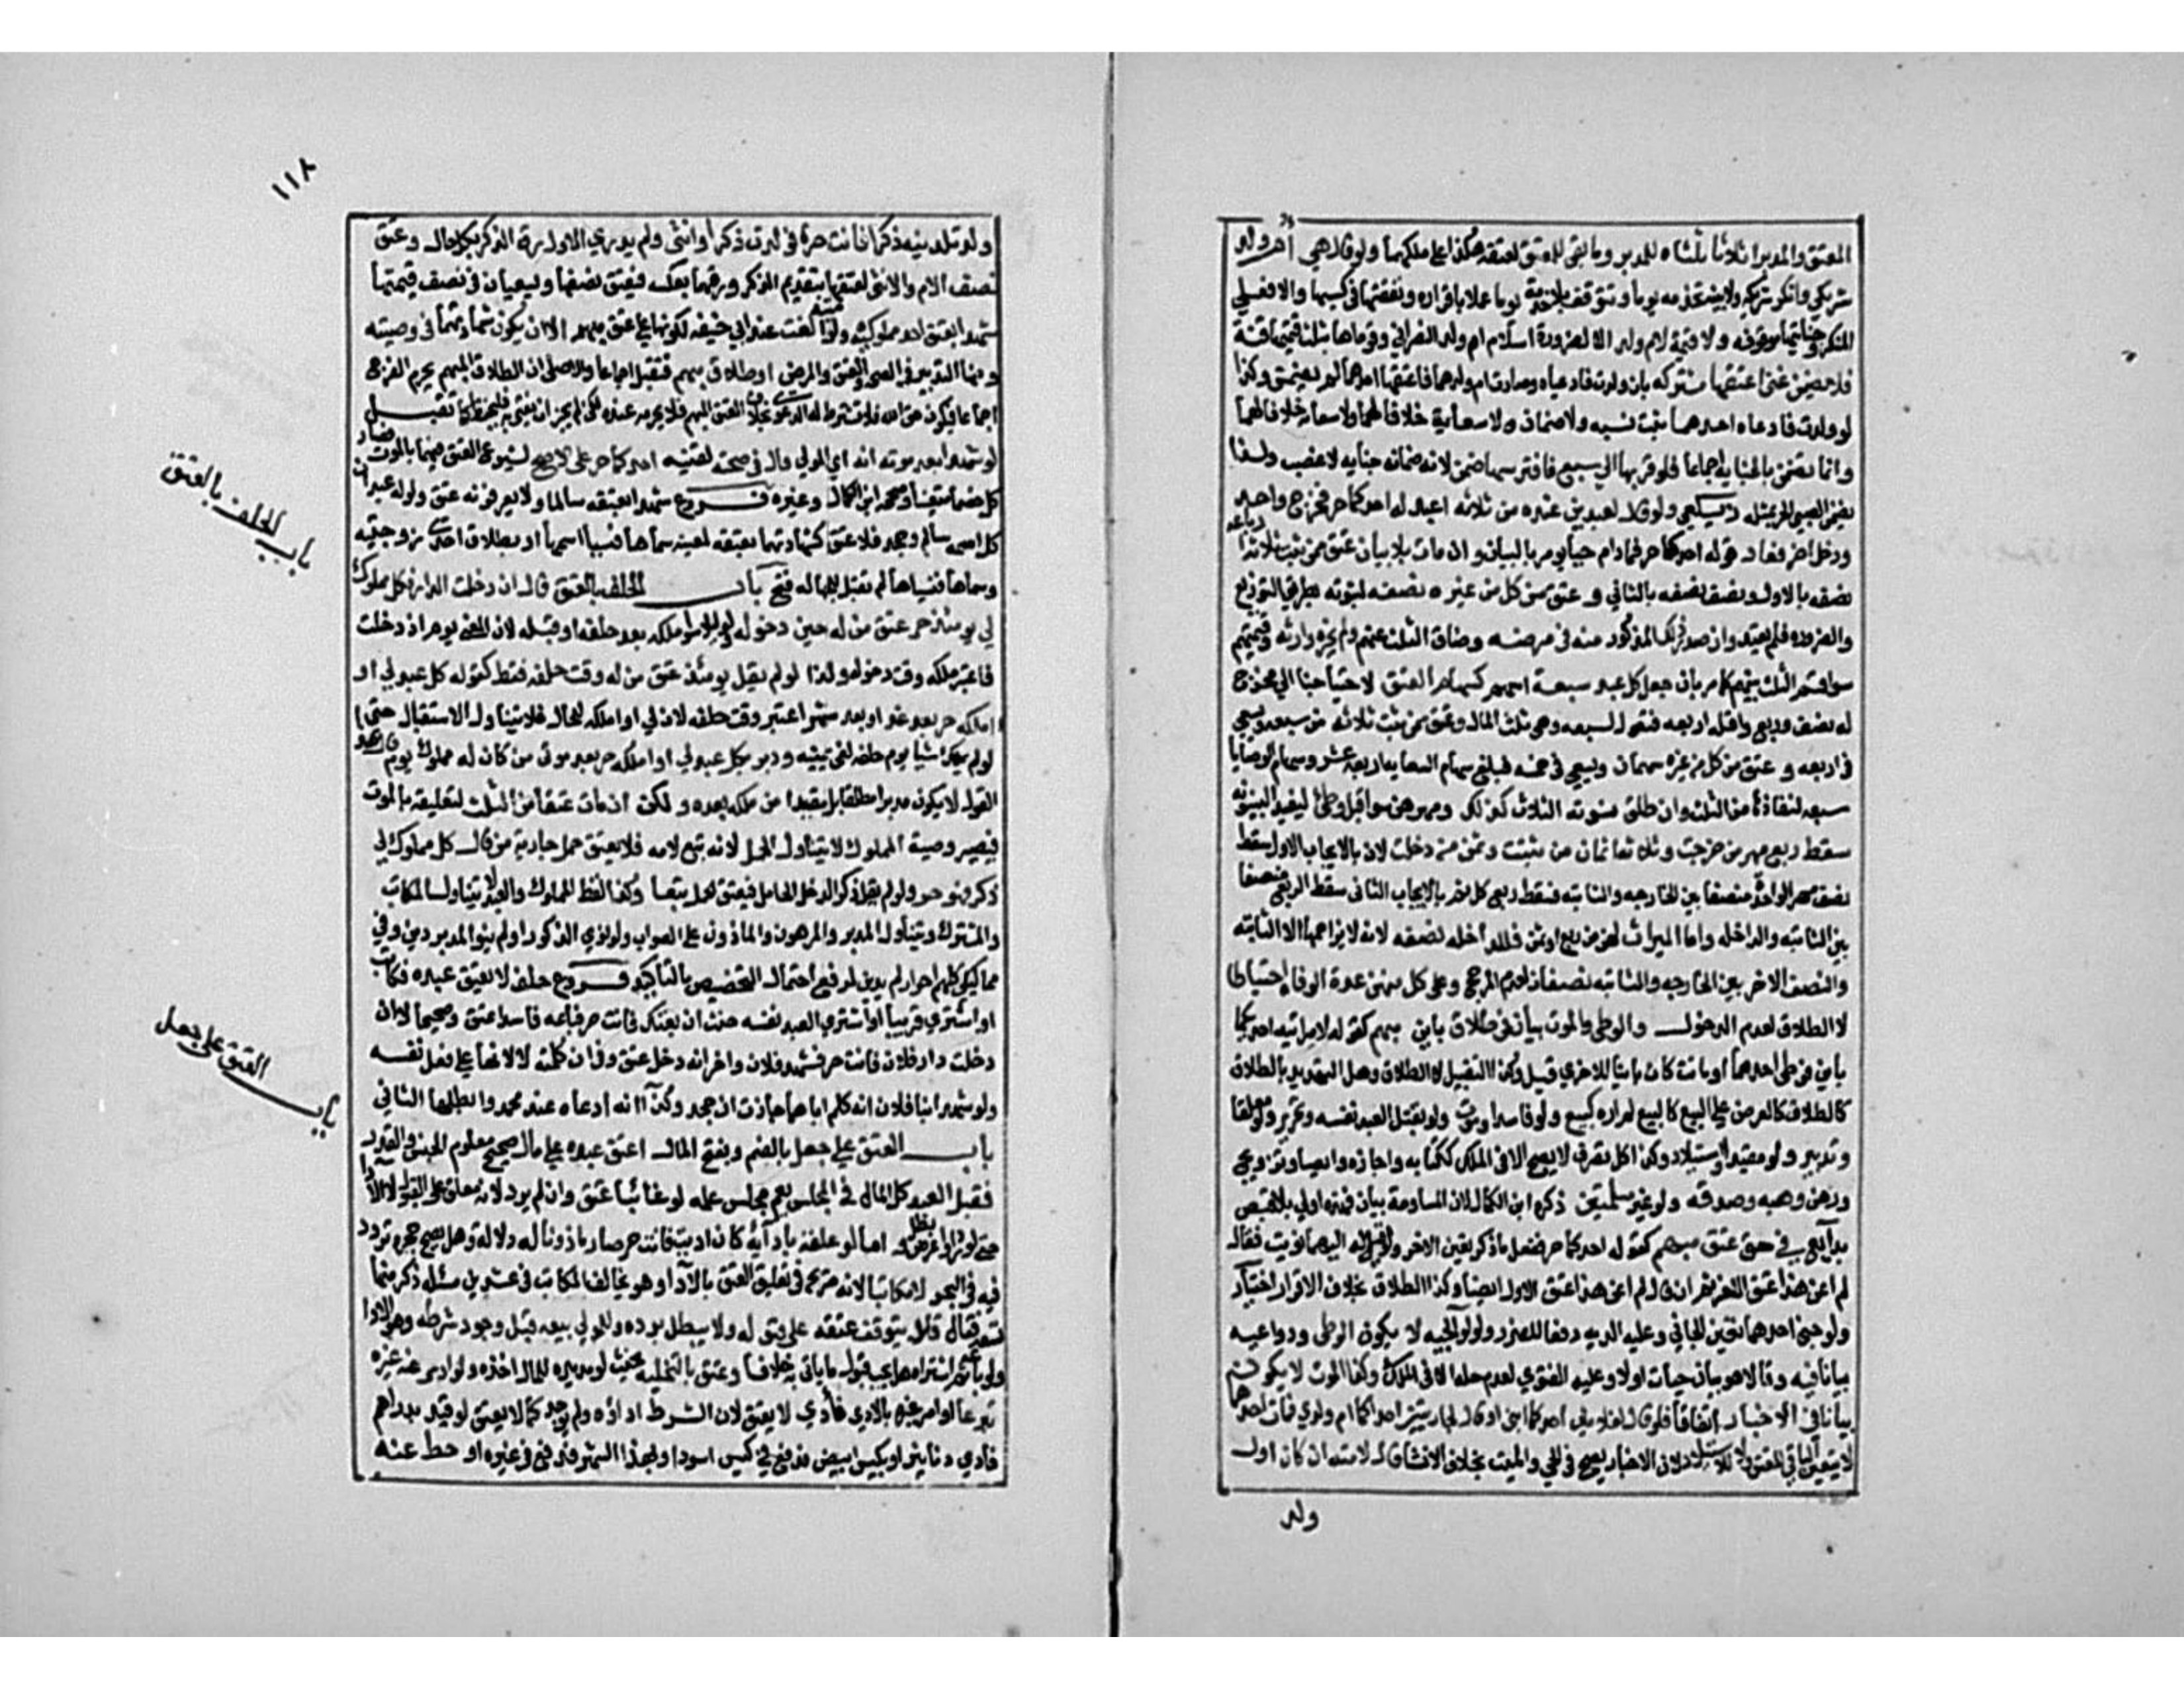 المعتق والمدبر اثلاثا ثلثاه للمدبر وما بقي للمعتق لعتقه هكذا على ملكهما ولو قال هي ام ولد
شريكي وانكر شريكه ولا بينة تخدمه يوما وتتوقف بلا خدمة يوما عملا باقراره ونفقتها في كسبها والا فعلى
المنكر وجنايتها موقوفه ولا قيمة لام ولد الا لضرورة اسلام ام ولد النصراني وقوماها بثلث قيمتها قنة
فلا يضمن غني اعتقها مشتركه بان ولدت فادعياه وصارت ام ولد لهما فاعتقها احدهما لم يضمن وكذا
لو ولدت فادعاه احدهما ثبت نسبه ولا ضمان ولا سعاية خلافا لهما
وانما تضمن بالجناية اجماعا فلو قربها الى سبع فافترسها ضمن لانه ضمان جنايه لا غصب ولذا
يضمن الصبي الحر بمثله ولو قال لعبدين عنده من ثلاثه اعبد له احدكما حر فخرج واحد
ودخل اخر فعاد قوله احدكما حر فما دام حيا يومر بالبيان وان مات بلا بيان عتق ممن ثبت ثلاثة ارباعه
نصفه بالاول ونصف نصفه بالثاني وعتق من كل من غيره نصفه لثبوته بطريق التوزيع
والضروره فلم يتعد وان صدر ذلك المذكور منه في مرضه وضاق الثلث عنهم ولم يجزه وارثه وقيمتهم
سوا قسم الثلث بينهم كما مر بان جعل كل عبد سبعة اسهم كسهام العتق لاحتياجنا الى مخرج
له نصف وربع واقله اربعه فتعول لسبعه وهي ثلث المال وعتق ممن ثبت ثلاثه من سبعه ويسعى
في اربعه وعتق من كل من غيره سهمان ويسعى في خمسه فبلغ سهام السعايه اربعه عشر وسهام الوصايا
سبعه لنفاذها من الثلث وان طلق نسوته الثلاث كذلك ومهرهن سوا قبل وطئ ليفيد البينونه
سقط ربع مهر من خرجت وثلاثه اثمان من ثبتت وثمن من دخلت لان بالايجاب الاول سقط
نصف مهر الواحدة منصفا بين الخارجه والثابته فسقط ربع كل ثم بالايجاب الثاني سقط الربع منصفا
بين الثابته والداخله واما الميراث لهن من ربع او ثمن فللداخله نصفه لانه لا يزاحمها الا الثابته
والنصف الاخر بين الخارجه والثابته نصفان لعدم المرجح وعلى كل منهن عدة الوفاة احتياطا
لا الطلاق لعدم الدخول والوطئ والموت بيان في طلاق باين مبهم كقوله لامراتيه احداكما
باين فوطئ احدهما او ماتت كان بيانا للاخرى قيل وكذا التقبيل لا الطلاق وهل التهديد بالطلاق
كالطلاق كالعرض على البيع كالبيع لم اره كبيع ولو فاسدا وموت ولو بقتل العبد نفسه وتحرير ولو معلقا
وتدبير ولو مقيدا واستيلاد وكذا كل تصرف لا يصح الا في الملك ككتابه واجازه وايصا وتزويج
ورهن وهبه وصدقه ولو غير مسلمتين ذكره ابن الكمال لان المساومة بيان فهذه اولى بلا قبض
بدائع في حق عتق مبهم كقوله احدكما حر ففعل ما ذكر تعين الاخر ولو قيل له ايهما نويت فقال
لم اعن هذا عتق الاخر ثم ان قال لم اعن هذا عتق الاول ايضا وكذا الطلاق بخلاف الاقرار اختيار
ولو جنى احدهما تعين للجاني وعليه الديه دفعا للضرر ولوالجيه لا يكون الوطئ ودواعيه
بيانا فيه وقالا هو بيان حبلت اولا وعليه الفتوى لعدم حله الا في الملك وكذا الموت لا يكون
بيانا في الاخبار اتفاقا فلو قال لغلامين احدكما ابني او قال لجاريتين احداكما ام ولدي فمات احدهما
لا يتعين الباقي للعتق ولا للاستيلاد لان الاخبار يصح في الحي والميت بخلاف الانشا قال لامته ان كان اول
ولد
١١٨
ولد تلدينه ذكرا فانت حرة فولدت ذكرا وانثى ولم يدري الاول رق الذكر بكل حال وعتق
نصف الام والانثى لعتقها بتقديم الذكر ورقهما بعكسه فيعتق نصفها ويسعيان في نصف قيمتهما
شهدا بعتق احد مملوكيه ولو امتيه لغت عند ابي حنيفه لكونها على عتق مبهم الا ان يكون شهادتهما في وصيته
ومنها التدبير في الصحه والعتق والمرض او طلاق مبهم فتقبل اجماعا والاصل ان الطلاق المبهم يحرم الفرج
اجماعا فيكون حق الله فلا تشترط له الدعوى بخلاف العتق المبهم فلا يحرمه عنده كما تقبل
لو شهدا بعد موته انه اي المولى قال في صحته لقنيه احدكما حر على الاصح لشيوع العتق فيهما بالموت فصار
كل خصما متعينا وصححه ابن الكمال وغيره فروع شهدا بعتقه سالما ولا يعرفونه عتق ولو له عبدان
كل اسمه سالم وجحد فلا عتق كشهادتهما بعتقه لمعينه سماها فنسيا اسمها او بطلاق احدى زوجتيه
وسماها فنسياها لم تقبل للجهاله فتح باب الحلف بالعتق قال ان دخلت الدار فكل مملوك
لي يومئذ حر عتق من له حين دخوله ولو ليلا سوا ملكه بعد حلفه او قبله لان المعنى يوم اذ دخلت
فاعتبر ملكه وقت دخوله ولذا لو لم يقل يومئذ عتق من له وقت حلفه فقط كقوله كل عبد لي او
املكه حر بعد غد او بعد شهر اعتبر وقت حلفه لان لي او املكه للحال فلا يتناول الاستقبال حتى
لو لم يملك شيا يوم حلفه لغى يمينه ودبر بكل عبد لي او املكه حر بعد موتي من كان له مملوك يوم قال هذا
القول لا يكون مدبرا مطلقا بل مقيدا من ملكه بعده ولكن ان مات عتقا من الثلث لتعليقه بالموت
فيصير وصية المملوك لا يتناول الحمل لانه تبع لامه فلا يعتق حمل جارية من قال كل مملوك لي
ذكر فهو حر ولو لم يقل ذكرا لدخل الحامل فيعتق الحمل تبعا وكذا لفظ المملوك والعبد لا يتناول المكاتب
والمشترك ويتناول المدبر والمرهون والماذون على الصواب ولو نوى الذكور او لم ينو المدبر دين وفي
مماليكي كلهم احرار لم يدين لدفع احتمال التخصيص بالتاكيد فروع حلف لا يعتق عبده فكاتبه
او اشترى قريبا او اشترى العبد نفسه حنث ان بعتك فانت حر فباعه فاسدا عتق وصحيحا لا ان
دخلت دار فلان فانت حر فشهد فلان واخر انه دخل عتق وفي ان كلمته لا لانها على فعل نفسه
ولو شهد ابنا فلان انه كلم اباهما جازت ان جحد وكذا انه ادعاه عند محمد وابطلها الثاني
باب العتق على جعل بالضم ويفتح المال اعتق عبده على مال صحيح معلوم الجنس والقدر
فقبل العبد كل المال في المجلس يعم مجلس علمه لو غائبا عتق وان لم يرد لانه معلق على القبول لا الادا
حتى لو رد او اعرض بطل اما لو علقه بادائه كان اديت فانت حر صار ماذونا له دلالة وهل يصح حجره تردد
فيه في البحر لا مكاتبا لانه صريح في تعليق العتق بالادا وهو يخالف المكاتب في عشرين مسئله ذكر منها
تسعة فقال فلا يتوقف عتقه على قبوله ولا يبطل برده وللمولى بيعه قبل وجود شرطه وهو الادا
ولو باعه ثم اشتراه هل يجب قبول ما ياتي به خلاف وعتق بالتخليه بحيث لو مد يده للمال اخذه ولو ادى عنه غيره
تبرعا او امر غيره بالادى فادى لا يعتق لان الشرط اداؤه ولم يوجد كما لا يعتق لو قيد بدراهم
فادى دنانير او بكيس ابيض فدفع في كيس اسود او بهذا الشهر فدفع في غيره او حط عنه
باب الحلف بالعتق
باب العتق على جعل